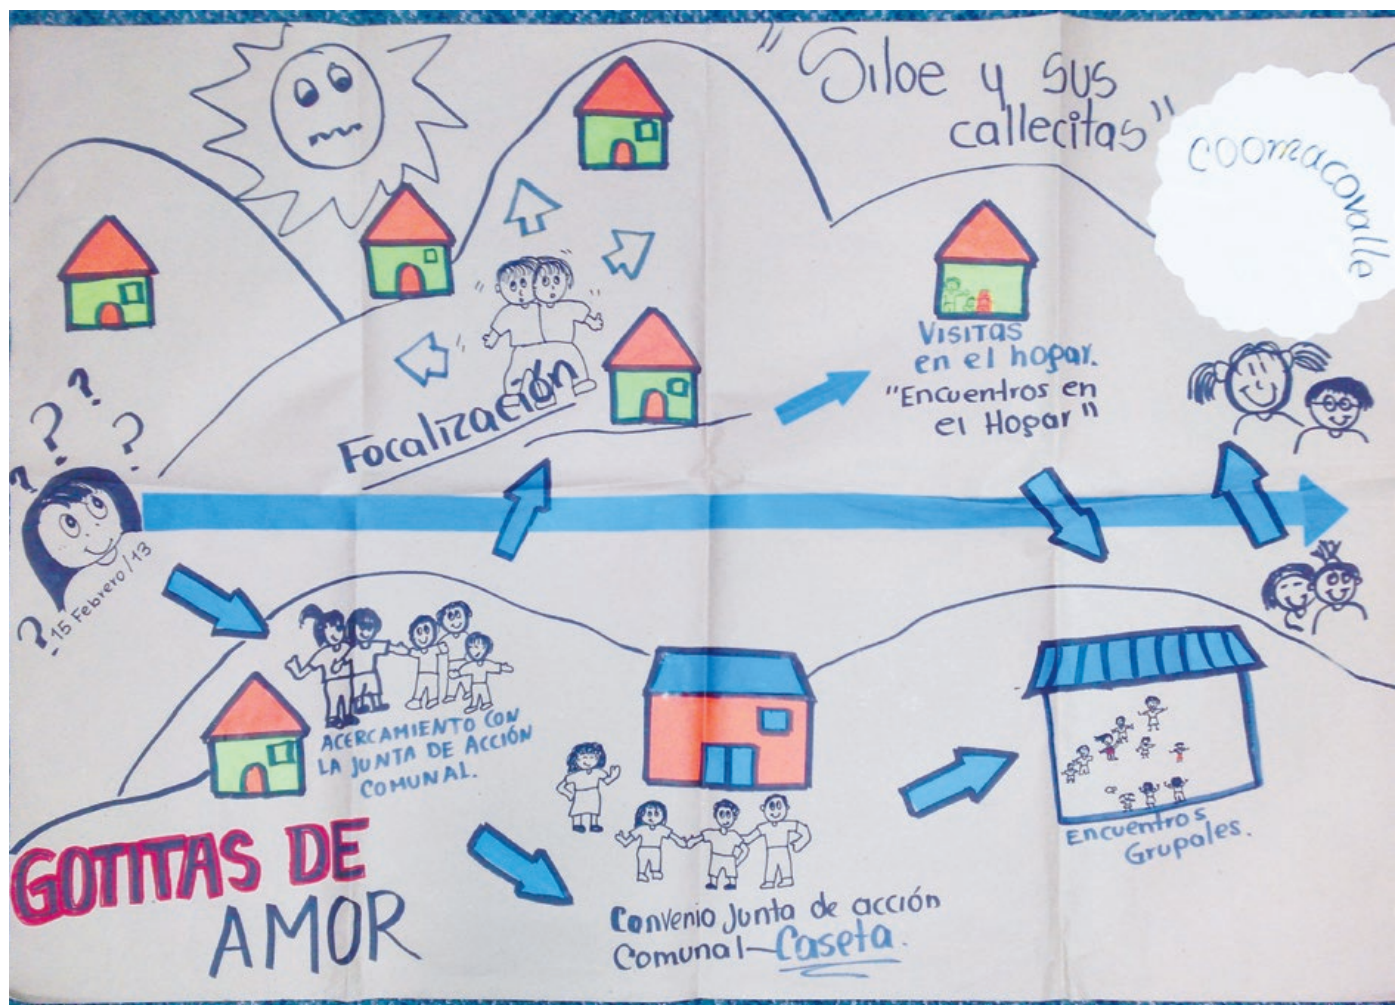 "Siloe y sus
callecitas"
coomacovalle
Focalización
Visitas
en el hogar.
"Encuentros en
el Hogar"
? ? ? ?
?
-15 Febrero/13
ACERCAMIENTO CON
LA JUNTA DE ACCIÓN
COMUNAL.
GOTITAS DE
AMOR
Convenio Junta de acción
Comunal-Caseta.
Encuentros
Grupales.